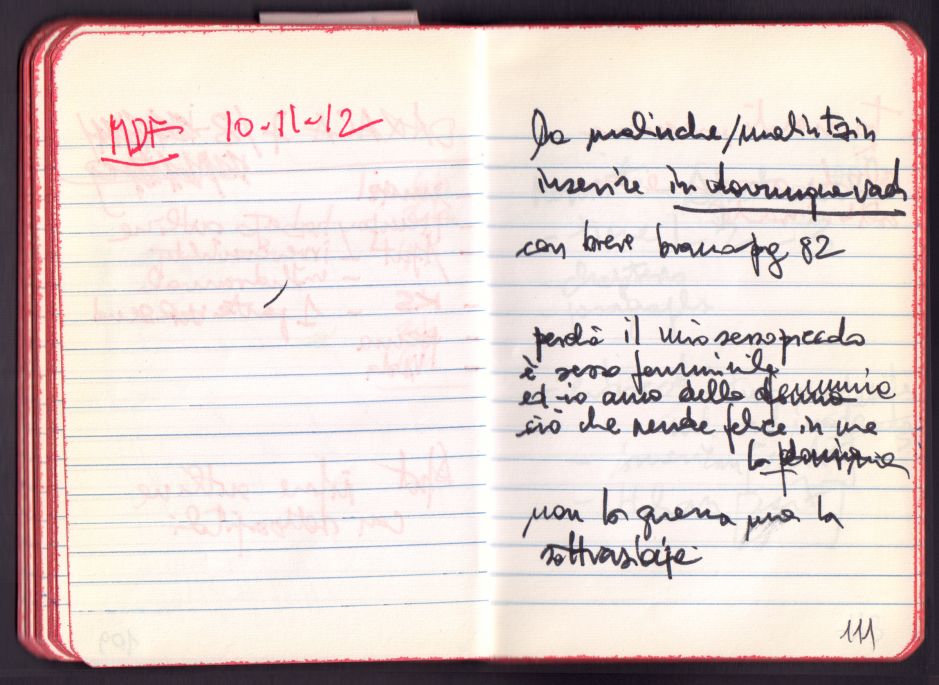 MDF 10-11-12
la malinche/malintzin
inserire in dovunque vada
con breve brano pg 82
perché il mio sesso
è sesso femminile
ed io amo della
ciò che rende felice in me
la
non la guerra ma la
111